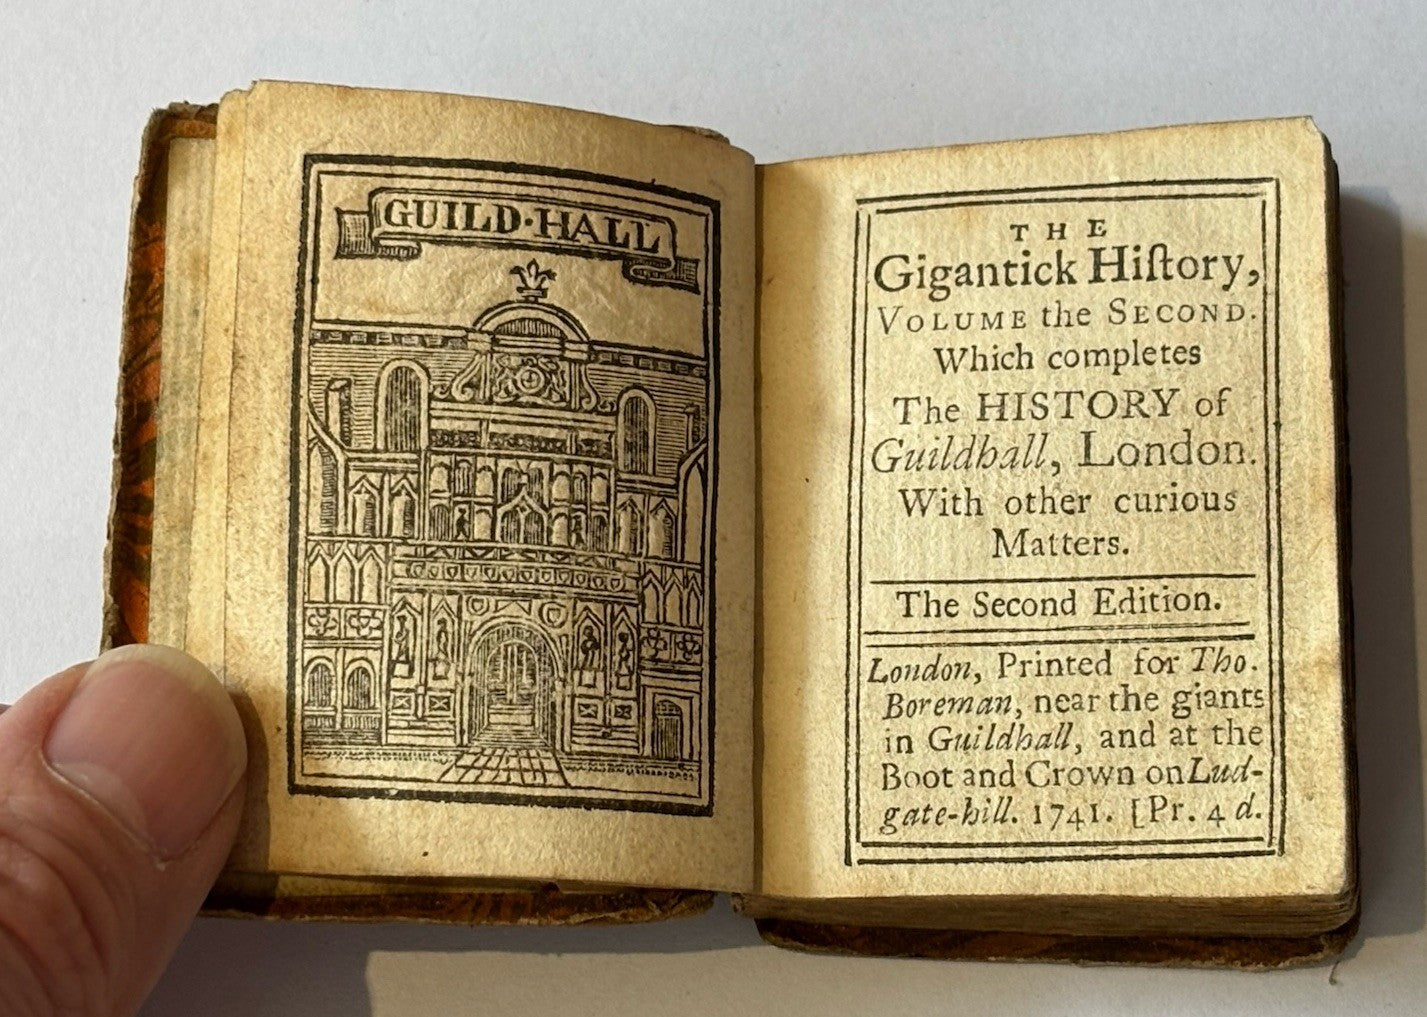 GUILD·HALL
THE
Gigantick Hiſtory,
VOLUME the SECOND.
Which completes
The HISTORY of
Guildhall, London.
With other curious
Matters.
The Second Edition.
London, Printed for Tho.
Boreman, near the giants
in Guildhall, and at the
Boot and Crown on Lud-
gate-hill. 1741. [Pr. 4 d.